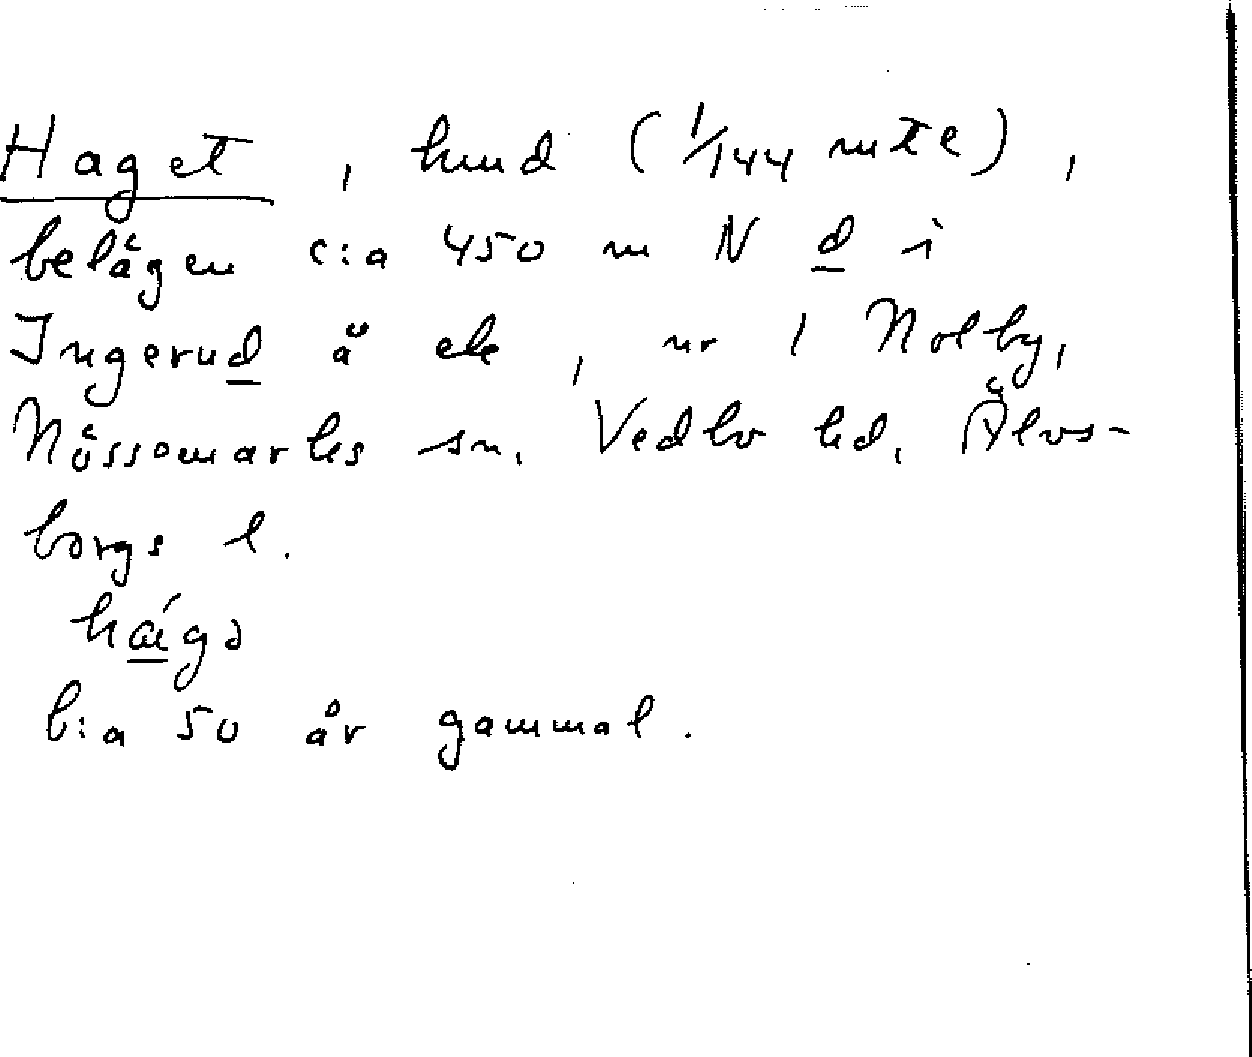 Haget, hmd (1/144 mtl),
belägen c:a 450 m N d i
Ingerud å ek, nr 1 Nolby,
Nössemarks sn, Vedbo hd, Älvs-
borgs l.
hǽgə
b:a 50 år gammal.